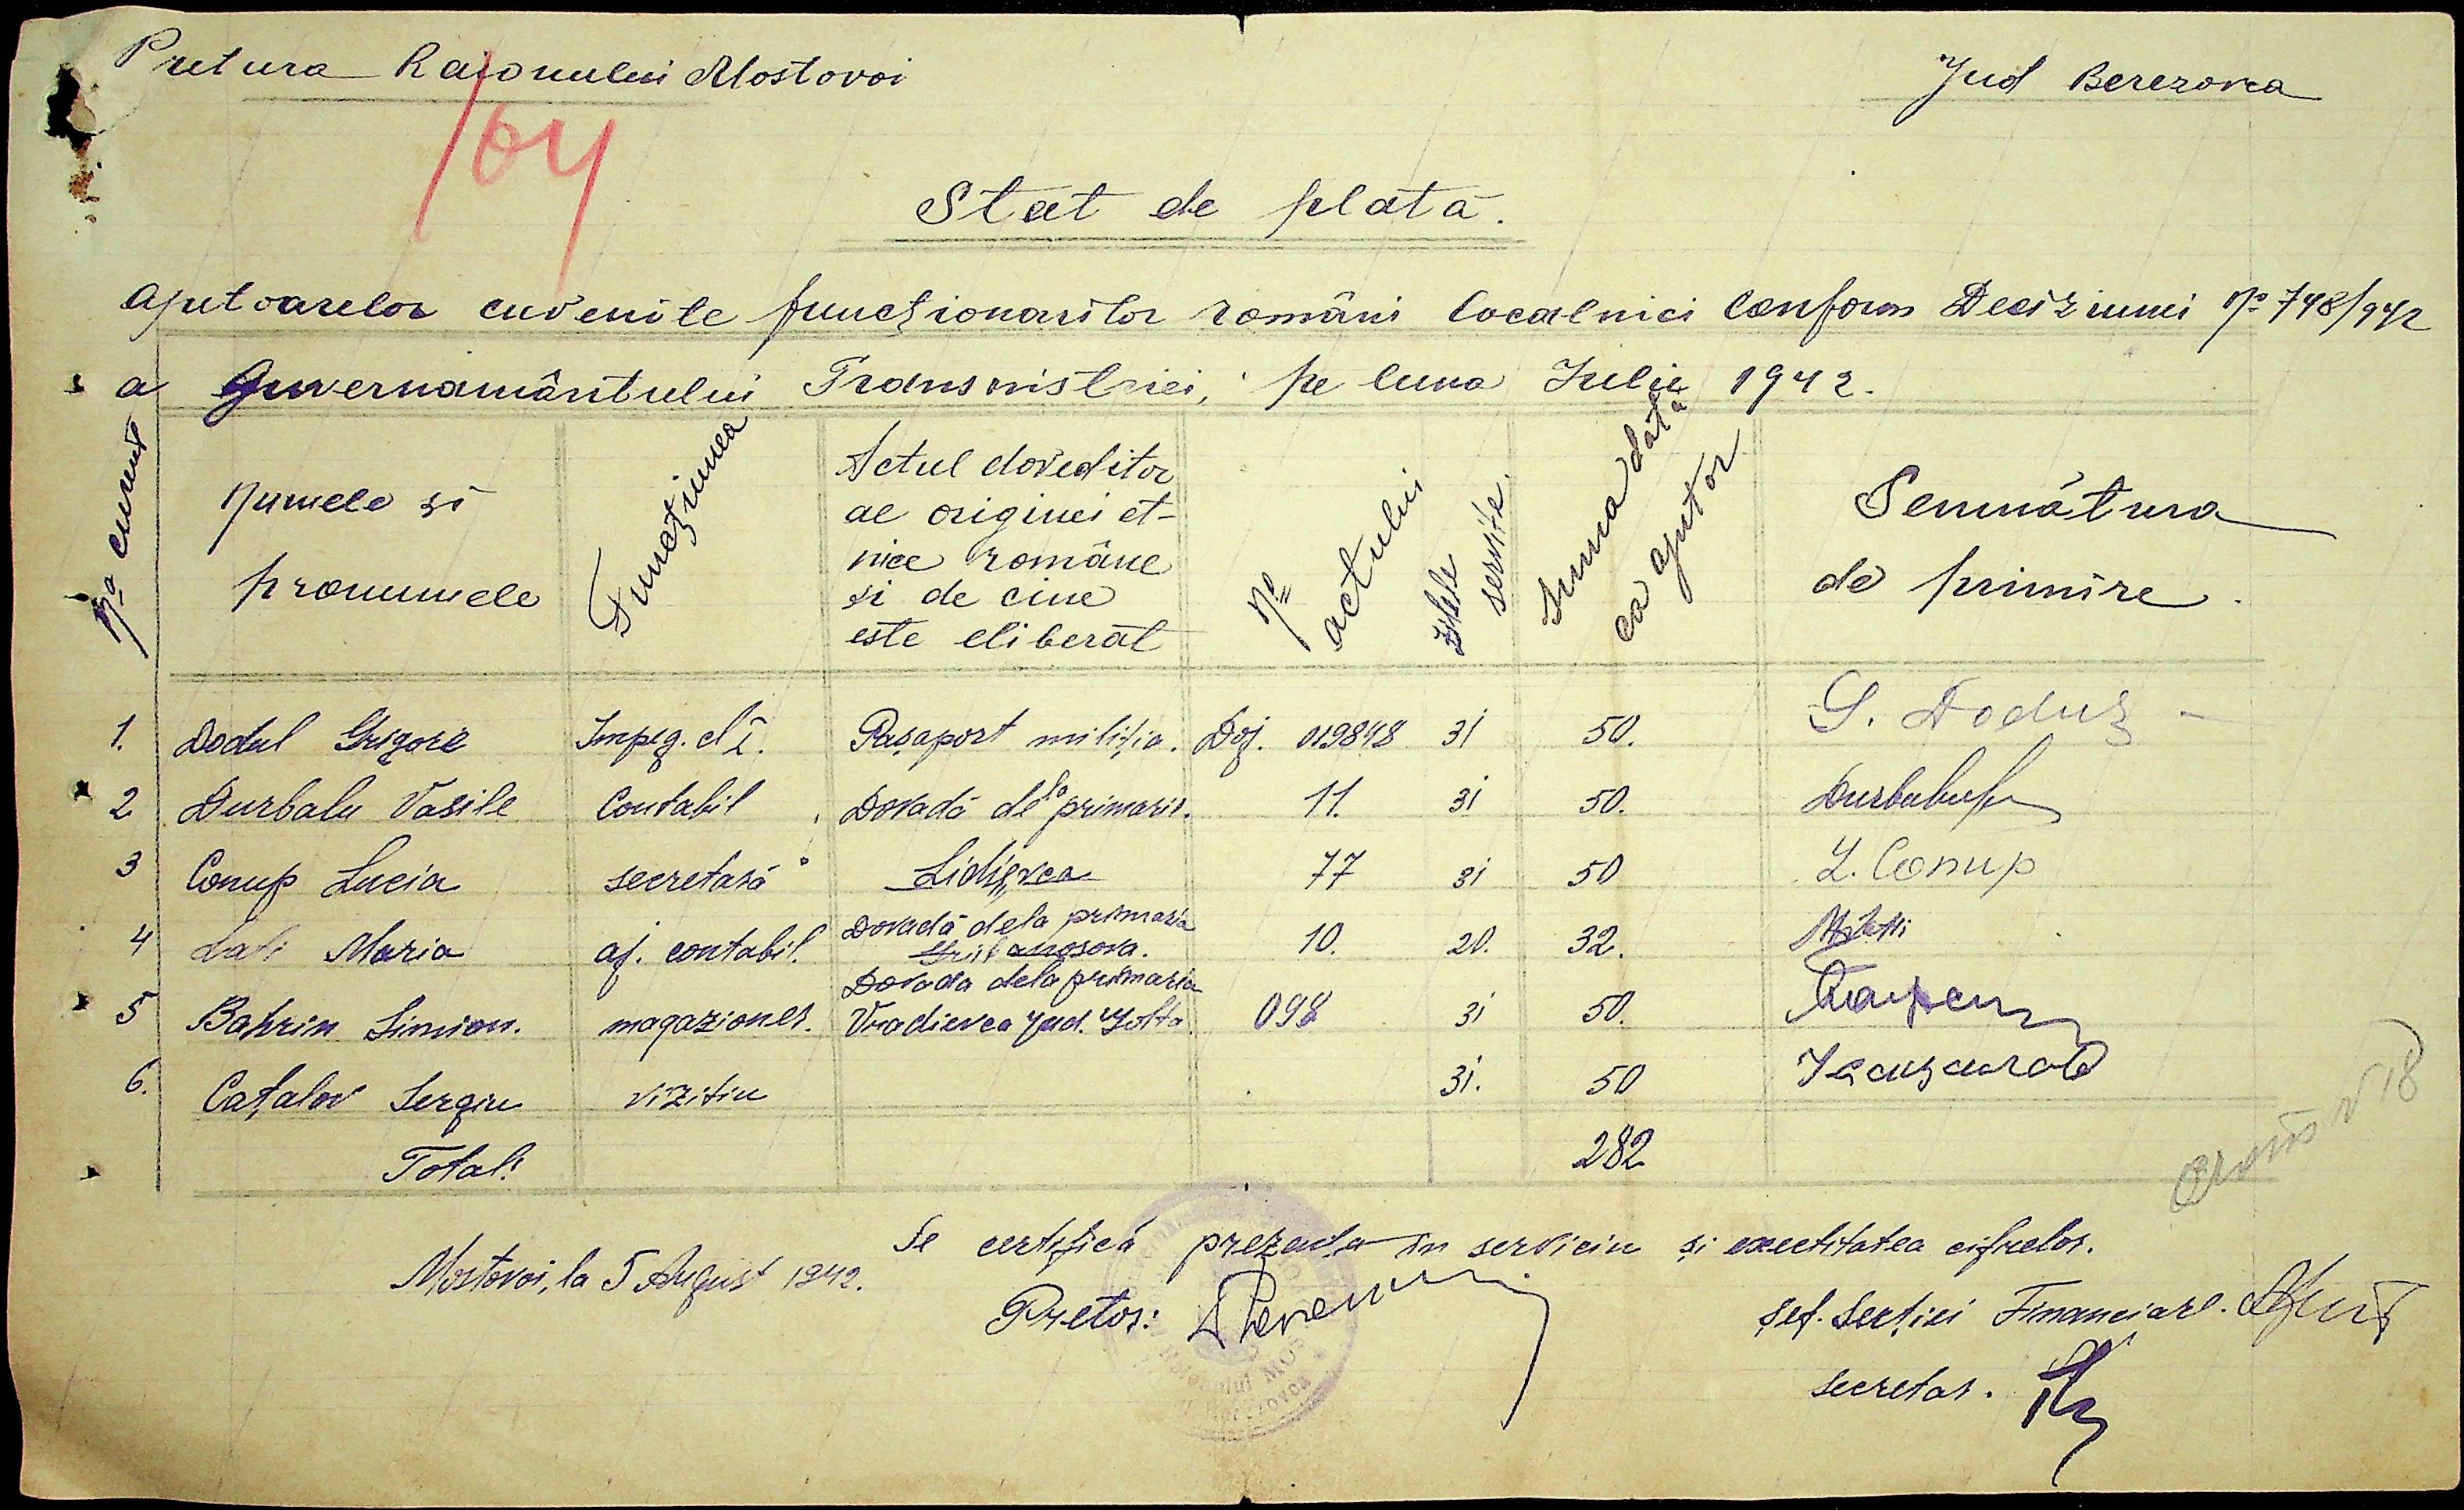 Pretura Raionului Mostovoi
Jud Berezovca
104
Stat de plată.
Ajutoarelor cuvenite funcționarilor români localnici conform Deciziunei No 748/942
a Guvernamântului Transnistriei, pe luna Iulie 1942.
No curent
Numele și pronumele
Funcțiunea
Actul doveditor al originei et-nice române și de cine este eliberat
No actului
Zilele servite.
Suma dată ca ajutor
Semnătura de primire.
1. Dodul Grigore Impeg. cl I. Pașaport miliția. Doj. 019848 31 50.
2 Durbalu Vasile Contabil Dovadă dela primăr. 11. 31 50.
3 Conup Lucia secretară Lidievca 77 31 50 L. Conup
4 Lati Maria aj. contabil. Dovadă dela primaria 10. 20. 32.
5 Bahrim Simion. magazioner. Dovada dela primaria Vradievca Jud. Golta 098 31 50.
6. Cațalov Sergiu vizitiu 31. 50
Total: 282
Se certifică prezența în serviciu și exactitatea cifrelor.
Mostovoi, la 5 August 1942.
Pretor:
Șef. Secției Financiare.
secretar.